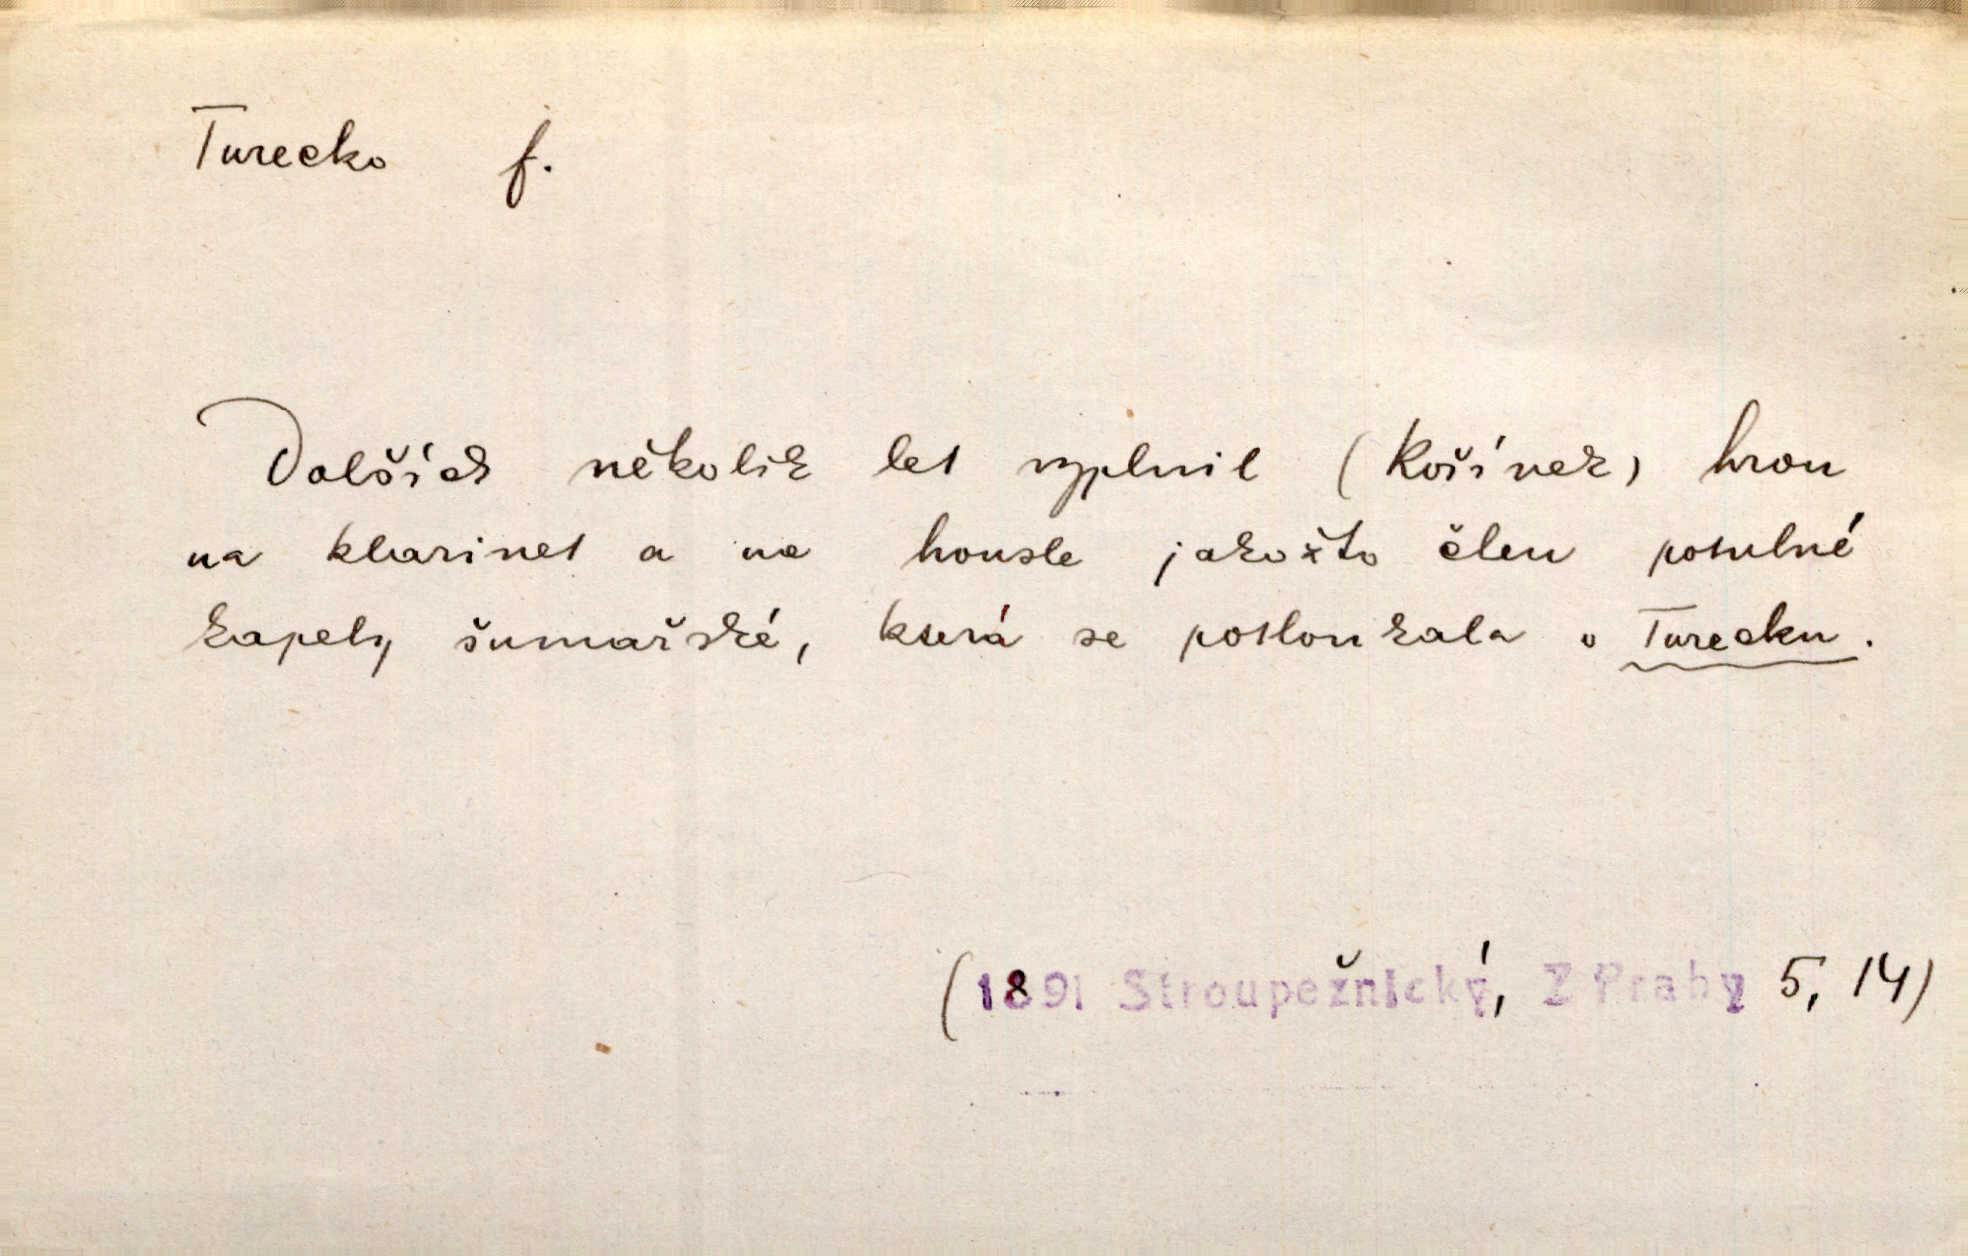 Turecko f.
Dalších několik let vyplnil (Košínek) hrou
na klarinet a na housle jakožto člen potulné
kapely šumařské, která se potloukala v Turecku.
(1891 Stroupežnický, Z Prahy 5, 14)